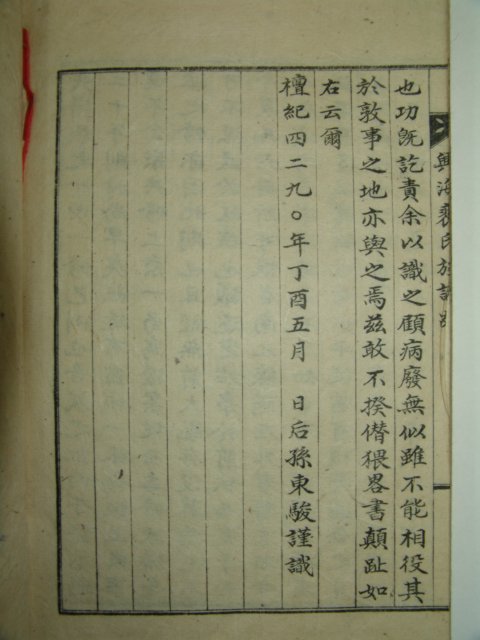 興海裵氏族譜
也功旣訖責余以識之顧病廢無似雖不能相役其
於敦事之地亦與之焉玆敢不揆僭猥畧書顛趾如
右云爾
檀紀四二九〇年丁酉五月 日后孫東駿謹識